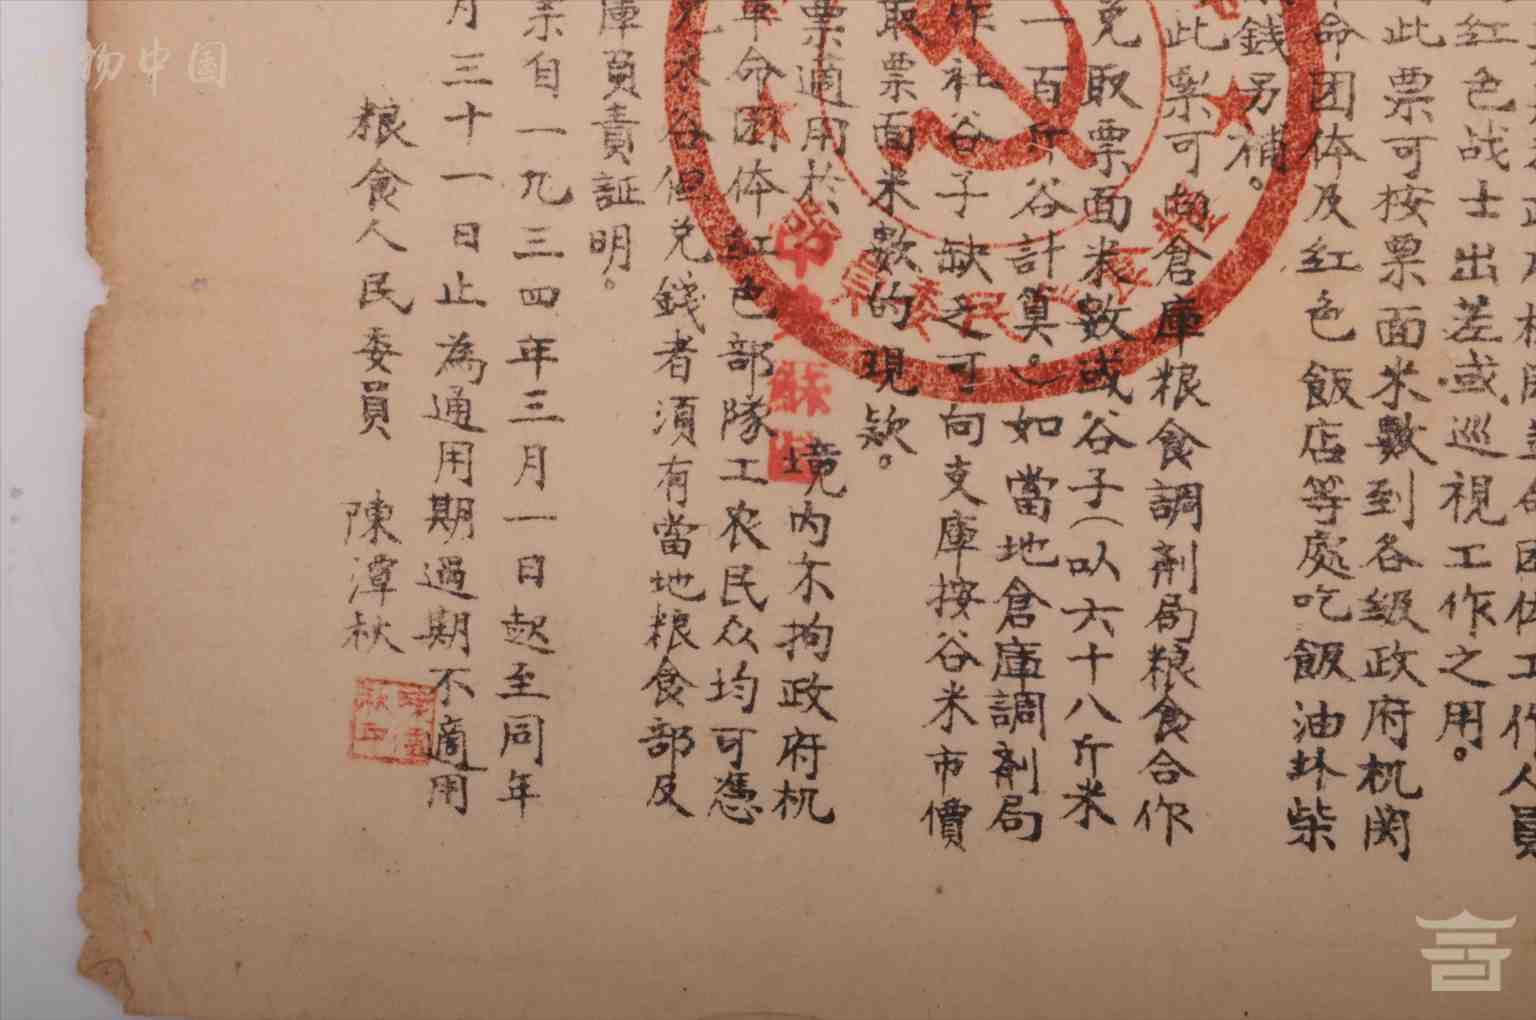 红色战士出差或巡視工作之用。
此票可按票面米數到各級政府机関
命团体及红色飯店等處吃飯油坏柴
錢另補。
此票可向倉庫粮食調剤局粮食合作
免取票面米數或谷子(以六十八斤米
一百斤谷計算。)如當地倉庫調剤局
作社谷子缺乏可向支庫按谷米市價
取票面米數的現欵。
票適用於中央蘇區境內不拘政府机
革命团体红色部隊工农民众均可憑
米谷但兑錢者須有當地粮食部及
庫負責証明。
票自一九三四年三月一日起至同年
月三十一日止為通用期過期不適用
粮食人民委員 陳潭秋
物中国